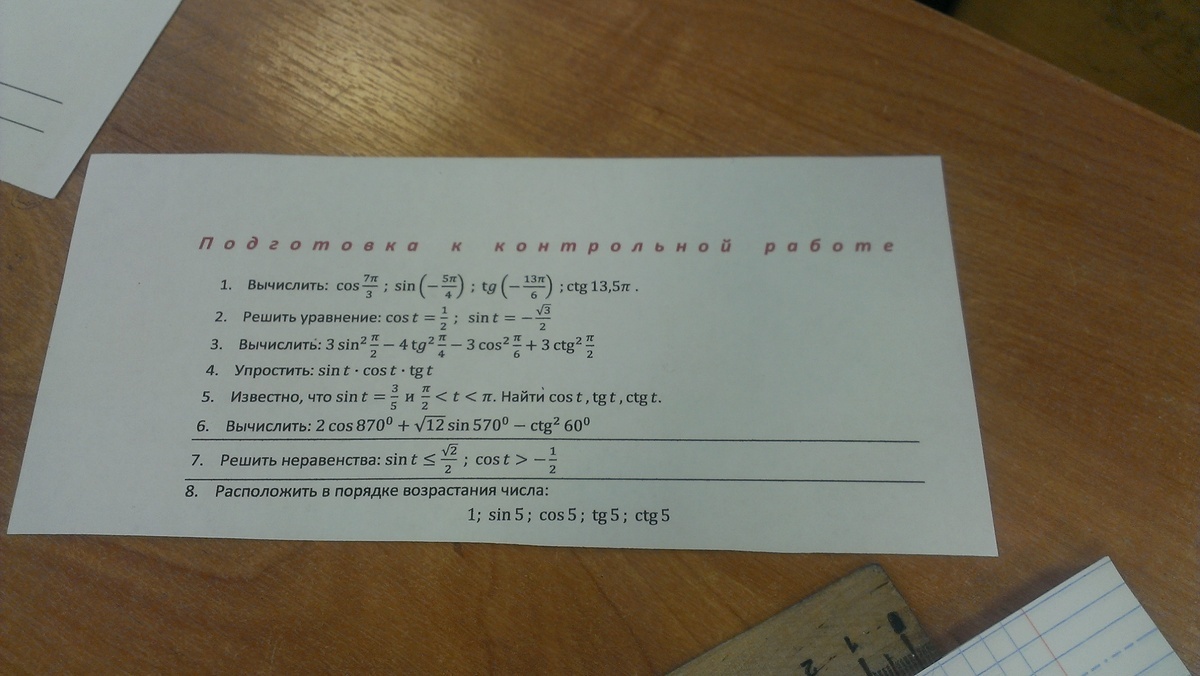 Подготовка к контрольной работе
1. Вычислить: cos 7π/3 ; sin (−5π/4) ; tg (−13π/6) ; ctg 13,5π .
2. Решить уравнение: cos t = 1/2 ; sin t = −√3/2
3. Вычислить: 3 sin² π/2 − 4 tg² π/4 − 3 cos² π/6 + 3 ctg² π/2
4. Упростить: sin t · cos t · tg t
5. Известно, что sin t = 3/5 и π/2 < t < π. Найти cos t , tg t , ctg t.
6. Вычислить: 2 cos 870⁰ + √12 sin 570⁰ − ctg² 60⁰
7. Решить неравенства: sin t ≤ √2/2 ; cos t > −1/2
8. Расположить в порядке возрастания числа:
1; sin 5 ; cos 5 ; tg 5 ; ctg 5
1 2